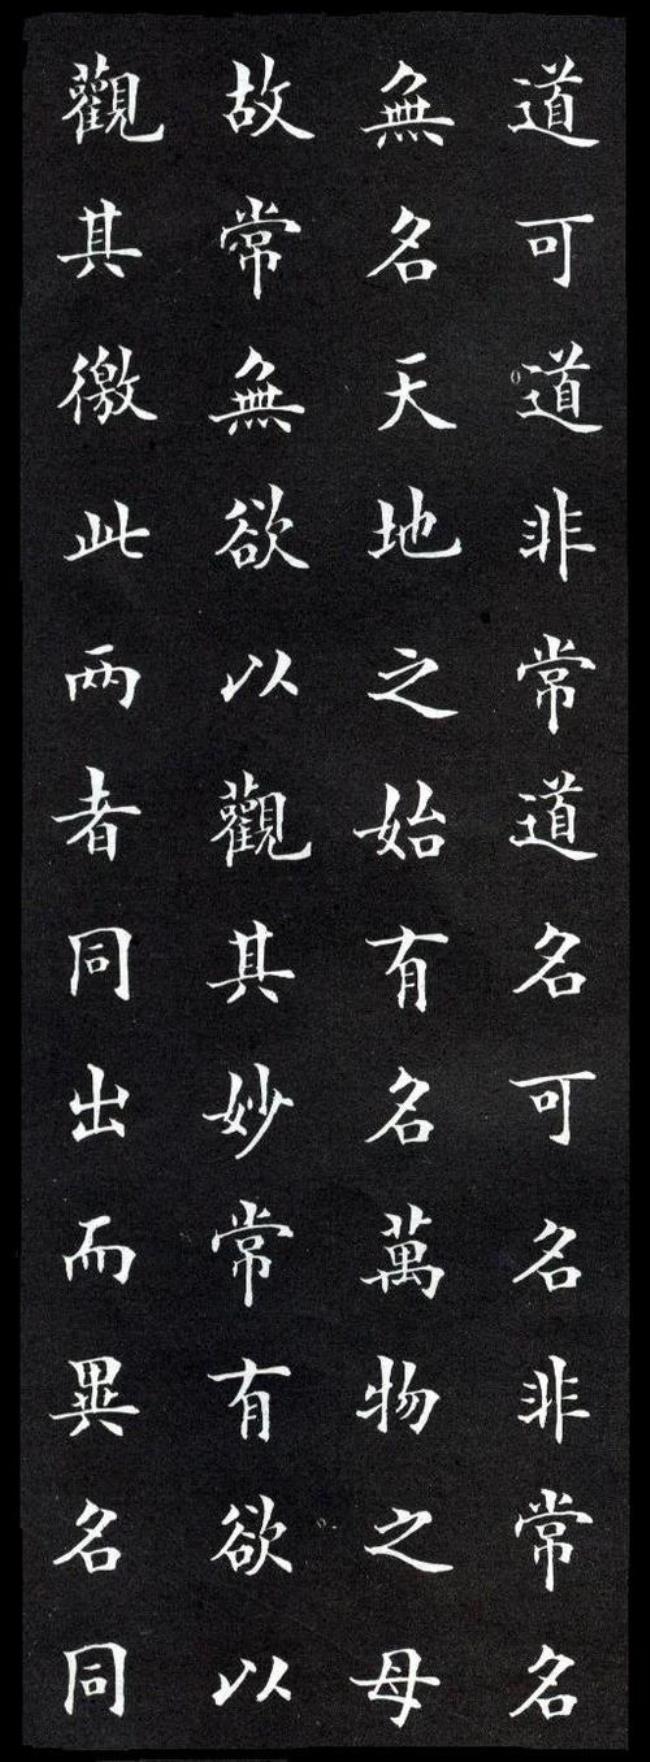 道可道非常道名可名非常名
無名天地之始有名萬物之母
故常無欲以觀其妙常有欲以
觀其徼此兩者同出而異名同